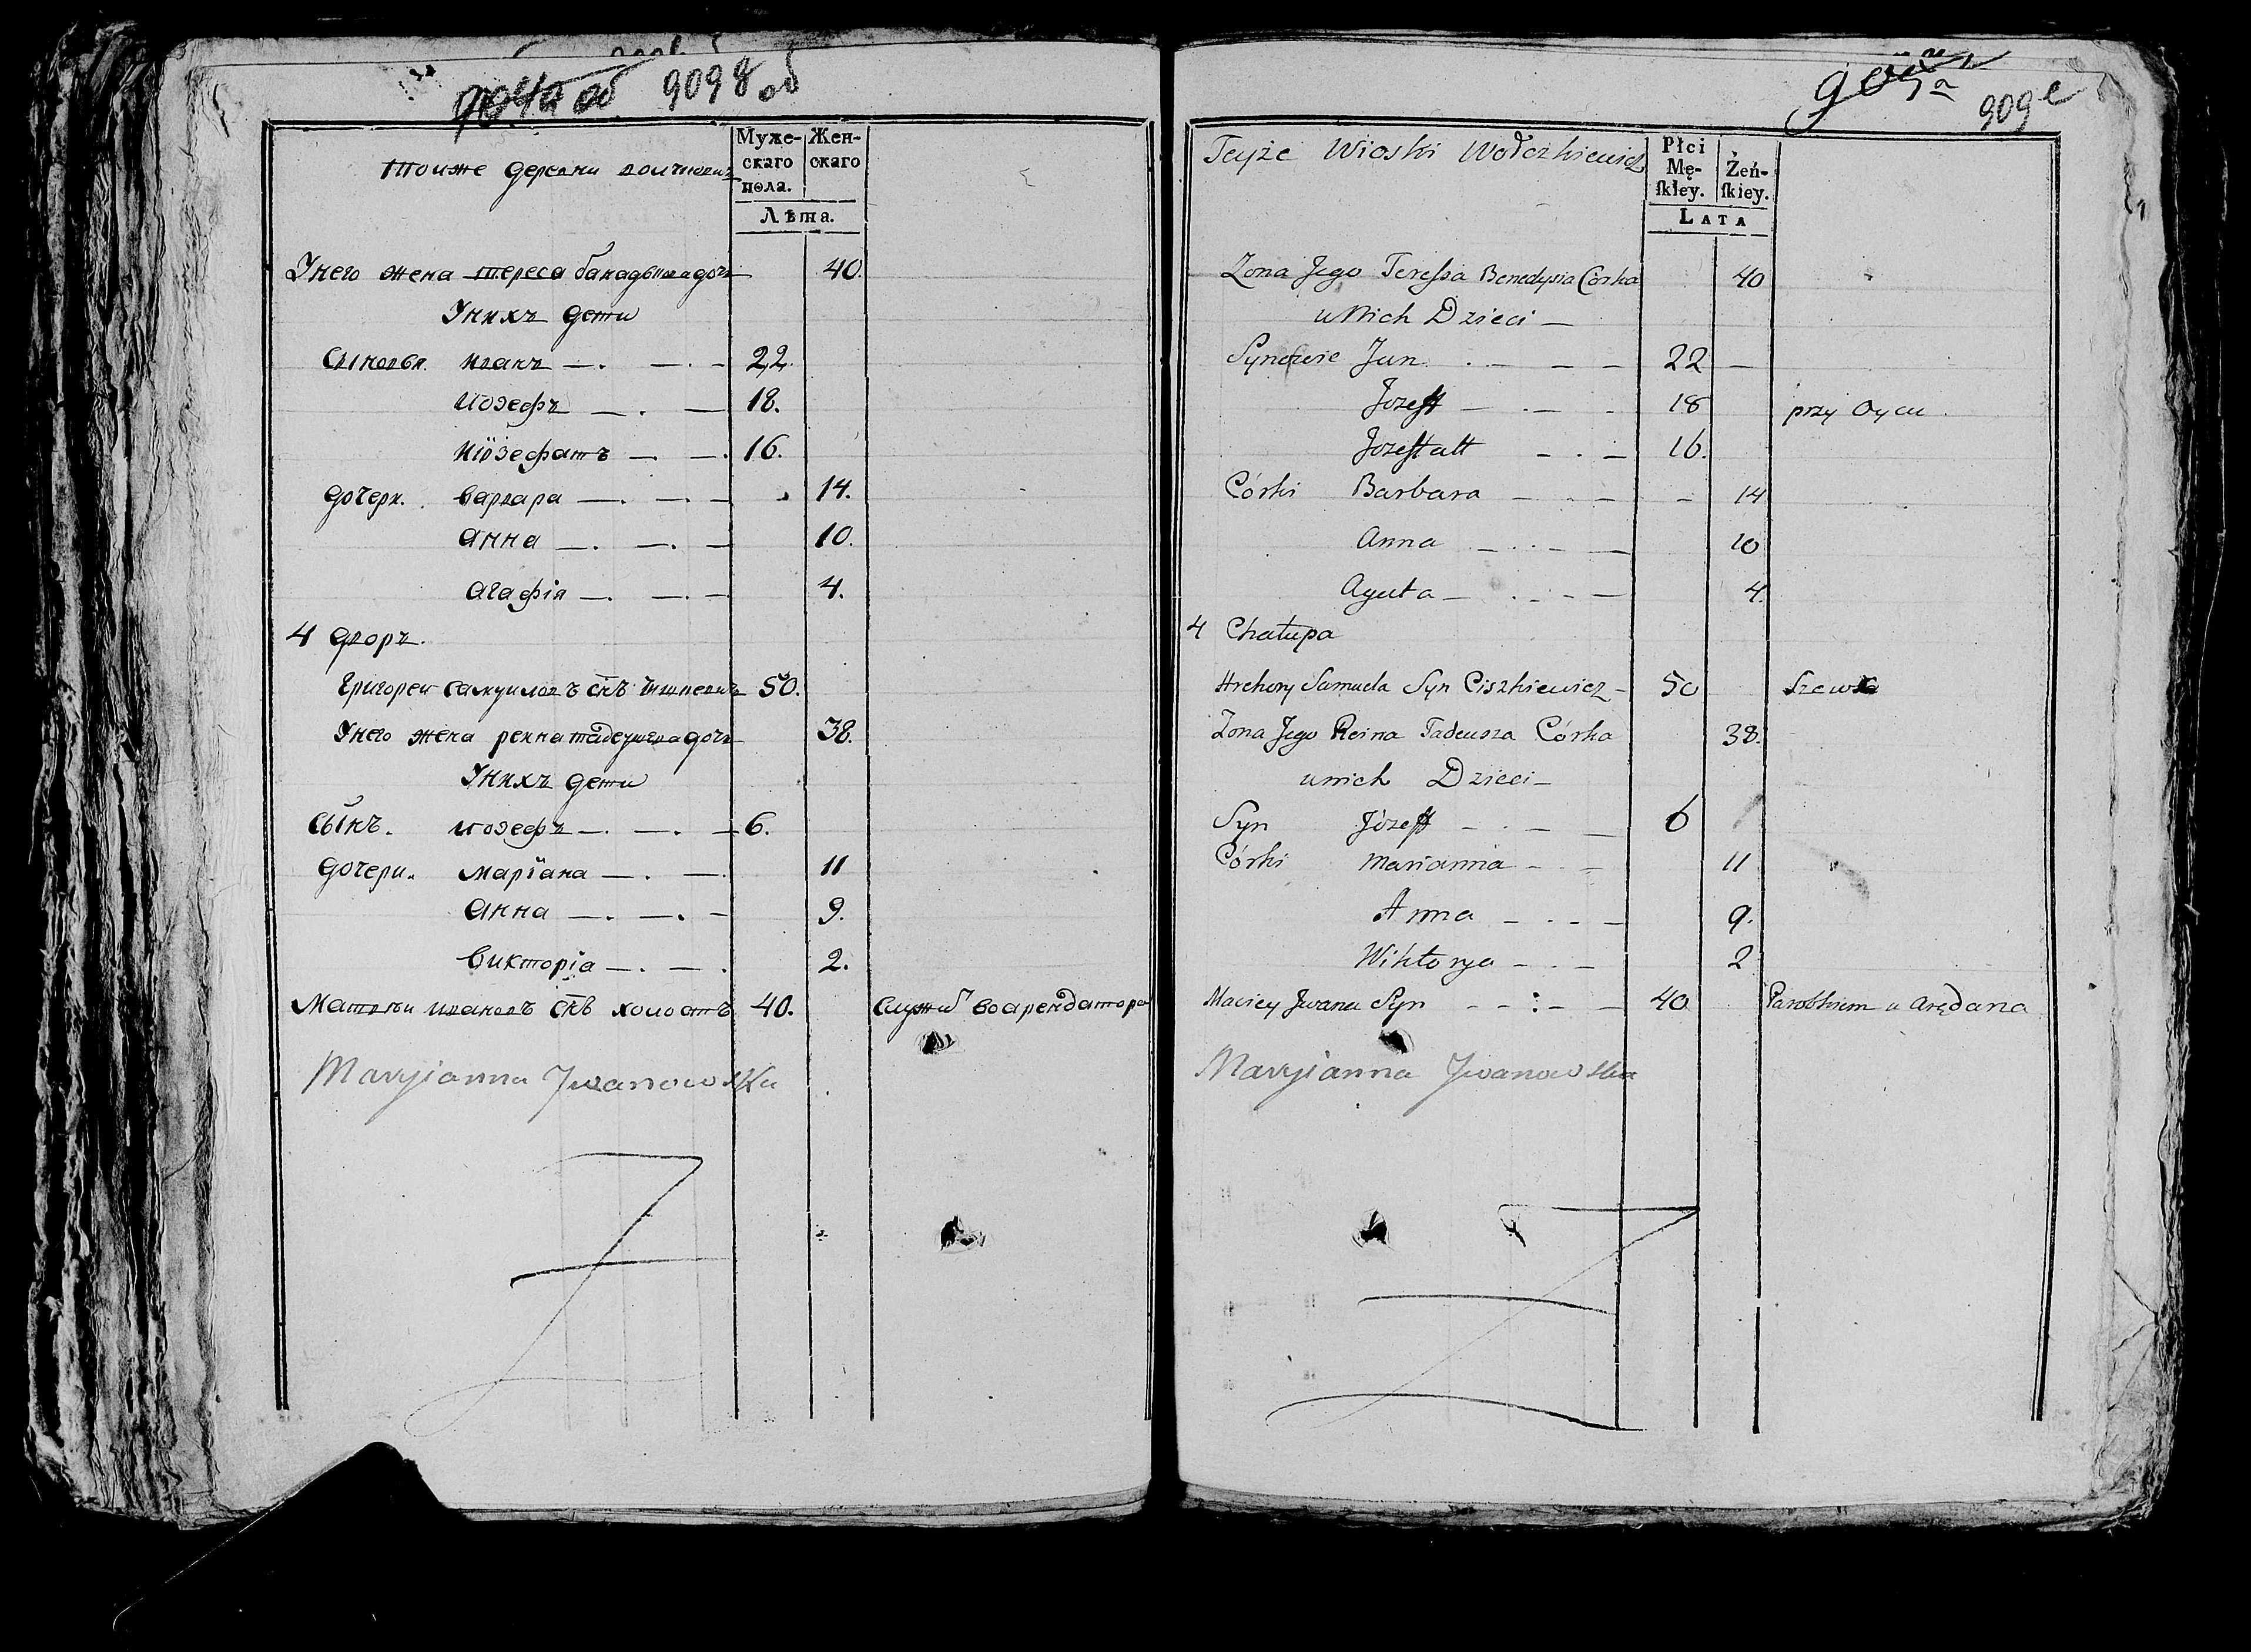 9098 об
Муже-
скаго
пола.
Жен-
скаго
Лѣта.
тоиже деревни
Унего жена тереса дочь 40.
Унихъ дети
Сыновья. иванъ 22.
иозефъ 18.
иозефатъ 16.
дочери. варвара 14.
Анна 10.
агафія 4.
4 дворъ.
Григореи самуиловъ снъ 50.
Унего жена реина тадеушева дочь 38.
Унихъ дети
Сынъ. иозефъ 6.
дочери. маріана 11
Анна 9.
Викторіа 2.
Матвѣи ивановъ снъ холостъ 40. служит во арендатора
Maryianna Jwanowska
909 е
Teyże Wioski Wołczkiewicz
Płci
Mę-
ſkłey.
Żeń-
ſkiey.
LATA
Zona Jego Teressa Benedysia Córka 40
u Nich Dzieci
Synowie Jan 22
Jozeff 18 przy Oycu
Jozeffatt 16.
Córki Barbara 14
Anna 10
Agata 4.
4 Chałupa
Hrehory Samuela Syn Ciszkiewicz 50 Szewc
Zona Jego Reina Tadeusza Córka 38.
u nich Dzieci
Syn Józeff 6
Córki Marianna 11
Anna 9.
Wiktorya 2
Maciey Jwana Syn 40 Parobkiem u Arędana
Maryianna Jwanowska